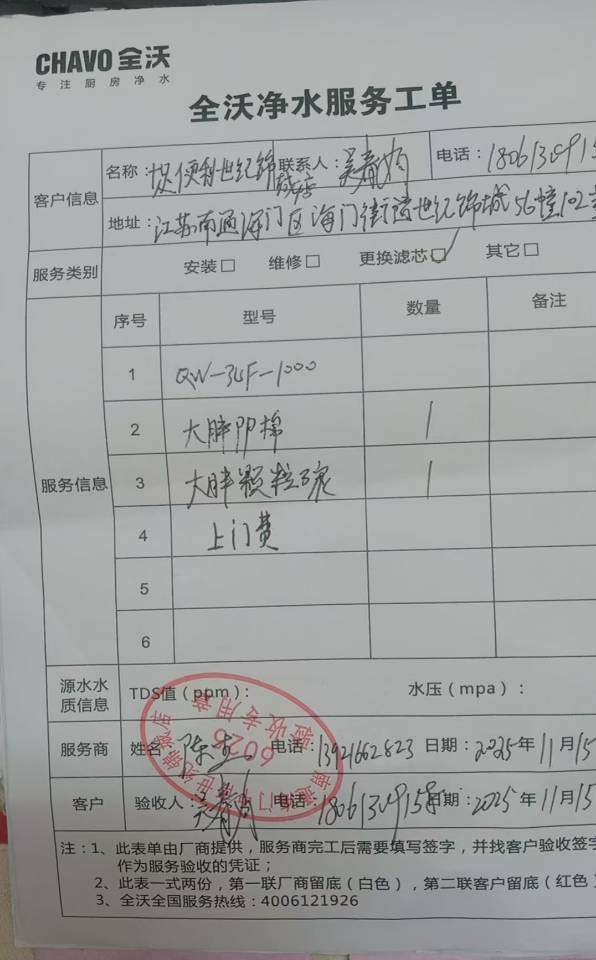 CHAVO 全沃
专注厨房净水
全沃净水服务工单
客户信息
名称：悦便利世纪锦城店 联系人：吴春 电话：
地址：江苏南通海门区海门街道世纪锦城56幢102
服务类别 安装□ 维修□ 更换滤芯☑ 其它□
服务信息
序号 型号 数量 备注
1 QW-3UF-1000
2 大胖PP棉 1
3 大胖颗粒碳 1
4 上门费
5
6
源水水质信息 TDS值（ppm）： 水压（mpa）：
服务商 姓名：陈 电话：13921662823 日期：2025年11月15
客户 验收人：吴春 电话： 日期：2025年11月15
6026
验收专用章
注：1、此表单由厂商提供，服务商完工后需要填写签字，并找客户验收签字
作为服务验收的凭证；
2、此表一式两份，第一联厂商留底（白色），第二联客户留底（红色）
3、全沃全国服务热线：4006121926